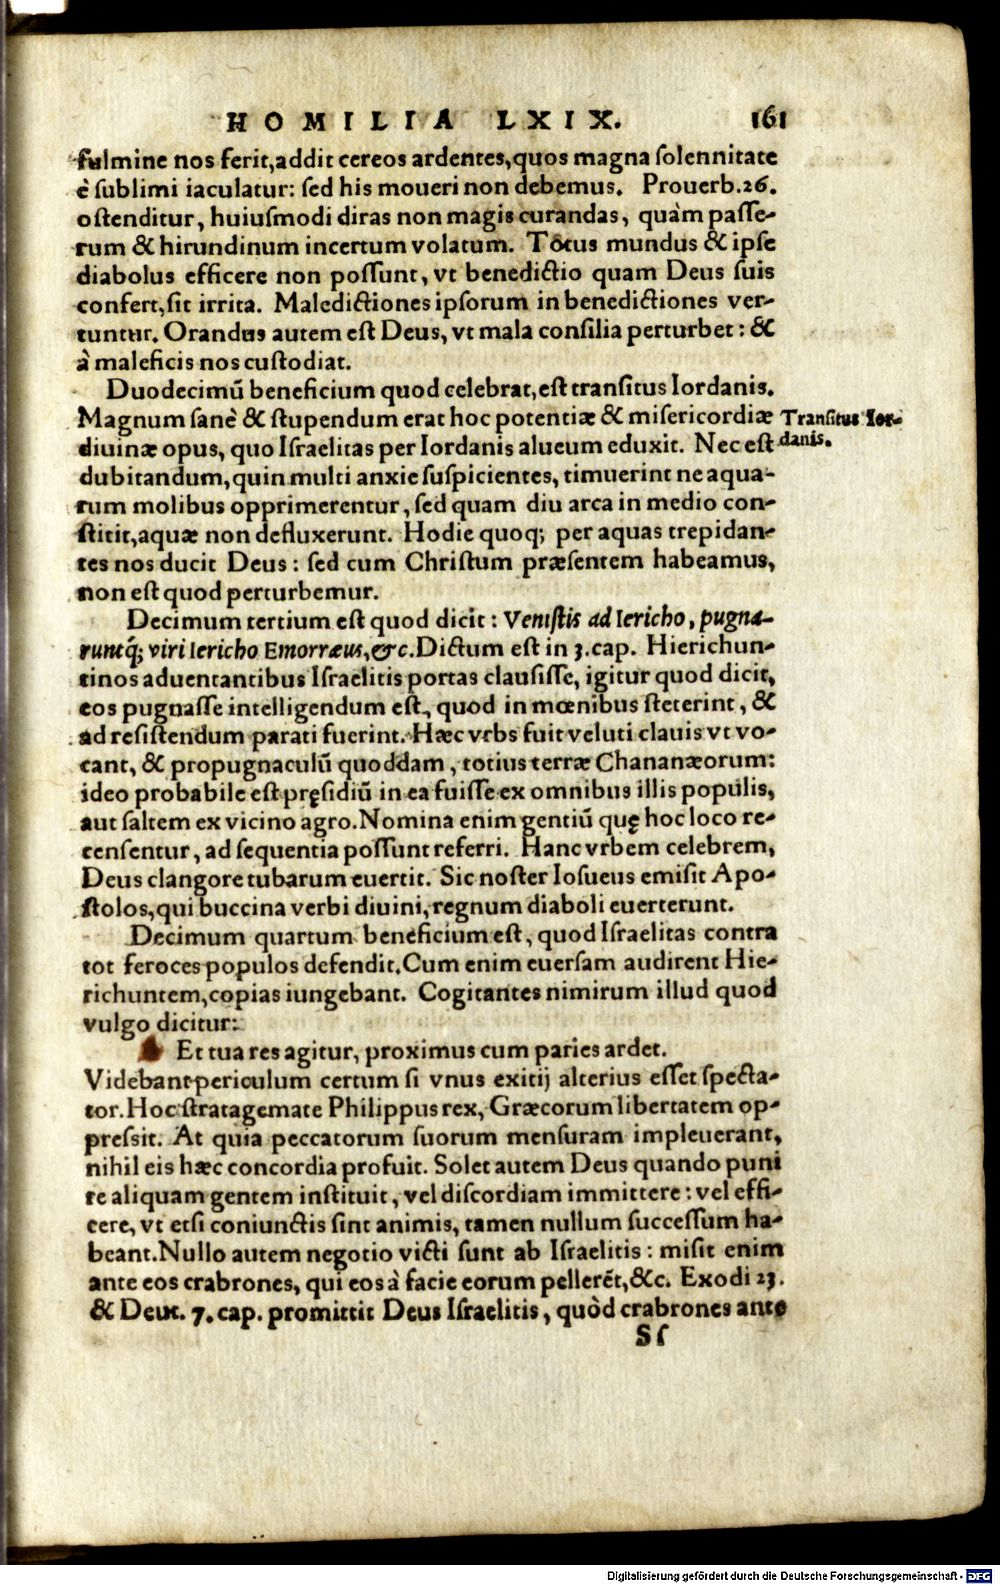 HOMILIA LXIX. 161
fulmine nos ferit, addit cereos ardentes, quos magna solennitate
è sublimi iaculatur: sed his moueri non debemus. Prouerb. 26.
ostenditur, huiusmodi diras non magis curandas, quàm passe-
rum & hirundinum incertum volatum. Totus mundus & ipse
diabolus efficere non possunt, vt benedictio quam Deus suis
confert, sit irrita. Maledictiones ipsorum in benedictiones ver-
tuntur. Orandus autem est Deus, vt mala consilia perturbet: &
à maleficis nos custodiat.
Duodecimũ beneficium quod celebrat, est transitus Iordanis.
Magnum sanè & stupendum erat hoc potentiæ & misericordiæ
Transitus Ior-
danis.
diuinæ opus, quo Israelitas per Iordanis alueum eduxit. Nec est
dubitandum, quin multi anxie suspicientes, timuerint ne aqua-
rum molibus opprimerentur, sed quam diu arca in medio con-
stitit, aquæ non defluxerunt. Hodie quoq; per aquas trepidan-
tes nos ducit Deus: sed cum Christum præsentem habeamus,
non est quod perturbemur.
Decimum tertium est quod dicit: Venistis ad Iericho, pugna-
runtq́; viri Iericho Emorræus, &c. Dictum est in 3. cap. Hierichun-
tinos aduentantibus Israelitis portas clausisse, igitur quod dicit,
eos pugnasse intelligendum est, quod in mœnibus steterint, &
ad resistendum parati fuerint. Hæc vrbs fuit veluti clauis vt vo-
cant, & propugnaculũ quoddam, totius terræ Chananæorum:
ideo probabile est pręsidiũ in ea fuisse ex omnibus illis populis,
aut saltem ex vicino agro. Nomina enim gentiũ quę hoc loco re-
censentur, ad sequentia possunt referri. Hanc vrbem celebrem,
Deus clangore tubarum euertit. Sic noster Iosueus emisit Apo-
stolos, qui buccina verbi diuini, regnum diaboli euerterunt.
Decimum quartum beneficium est, quod Israelitas contra
tot feroces populos defendit. Cum enim euersam audirent Hie-
richuntem, copias iungebant. Cogitantes nimirum illud quod
vulgo dicitur:
Et tua res agitur, proximus cum paries ardet.
Videbant periculum certum si vnus exitij alterius esset specta-
tor. Hoc stratagemate Philippus rex, Græcorum libertatem op-
pressit. At quia peccatorum suorum mensuram impleuerant,
nihil eis hæc concordia profuit. Solet autem Deus quando puni
re aliquam gentem instituit, vel discordiam immittere: vel effi-
cere, vt etsi coniunctis sint animis, tamen nullum successum ha-
beant. Nullo autem negotio victi sunt ab Israelitis: misit enim
ante eos crabrones, qui eos à facie eorum pellerẽt, &c. Exodi 23.
& Deut. 7. cap. promittit Deus Israelitis, quòd crabrones ante
Sſ
Digitalisierung gefördert durch die Deutsche Forschungsgemeinschaft - DFG